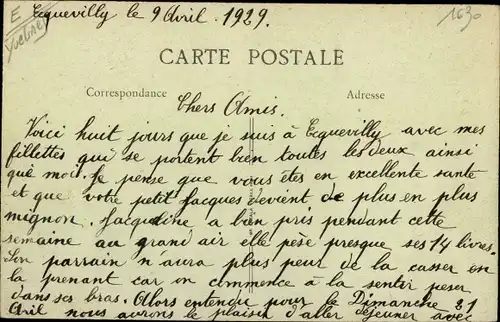 Ecquevilly le 9 Avril . 1929.
1630
E
Yvelines
CARTE POSTALE
Correspondance
Adresse
Chers Amis.
Voici huit jours que je suis à Ecquevilly avec mes
fillettes qui se portent bien toutes les deux ainsi
que moi. Je pense que vous êtes en excellente santé
et que votre petit Jacques devient de plus en plus
mignon. Jacqueline a bien pris pendant cette
semaine au grand air elle pèse presque ses 14 livres.
Son parrain n'aura plus peur de la casser en
la prenant car on commence à la sentir peser
dans ses bras. Alors entendu pour le Dimanche 21
Avril nous aurons le plaisir d'aller déjeuner avec